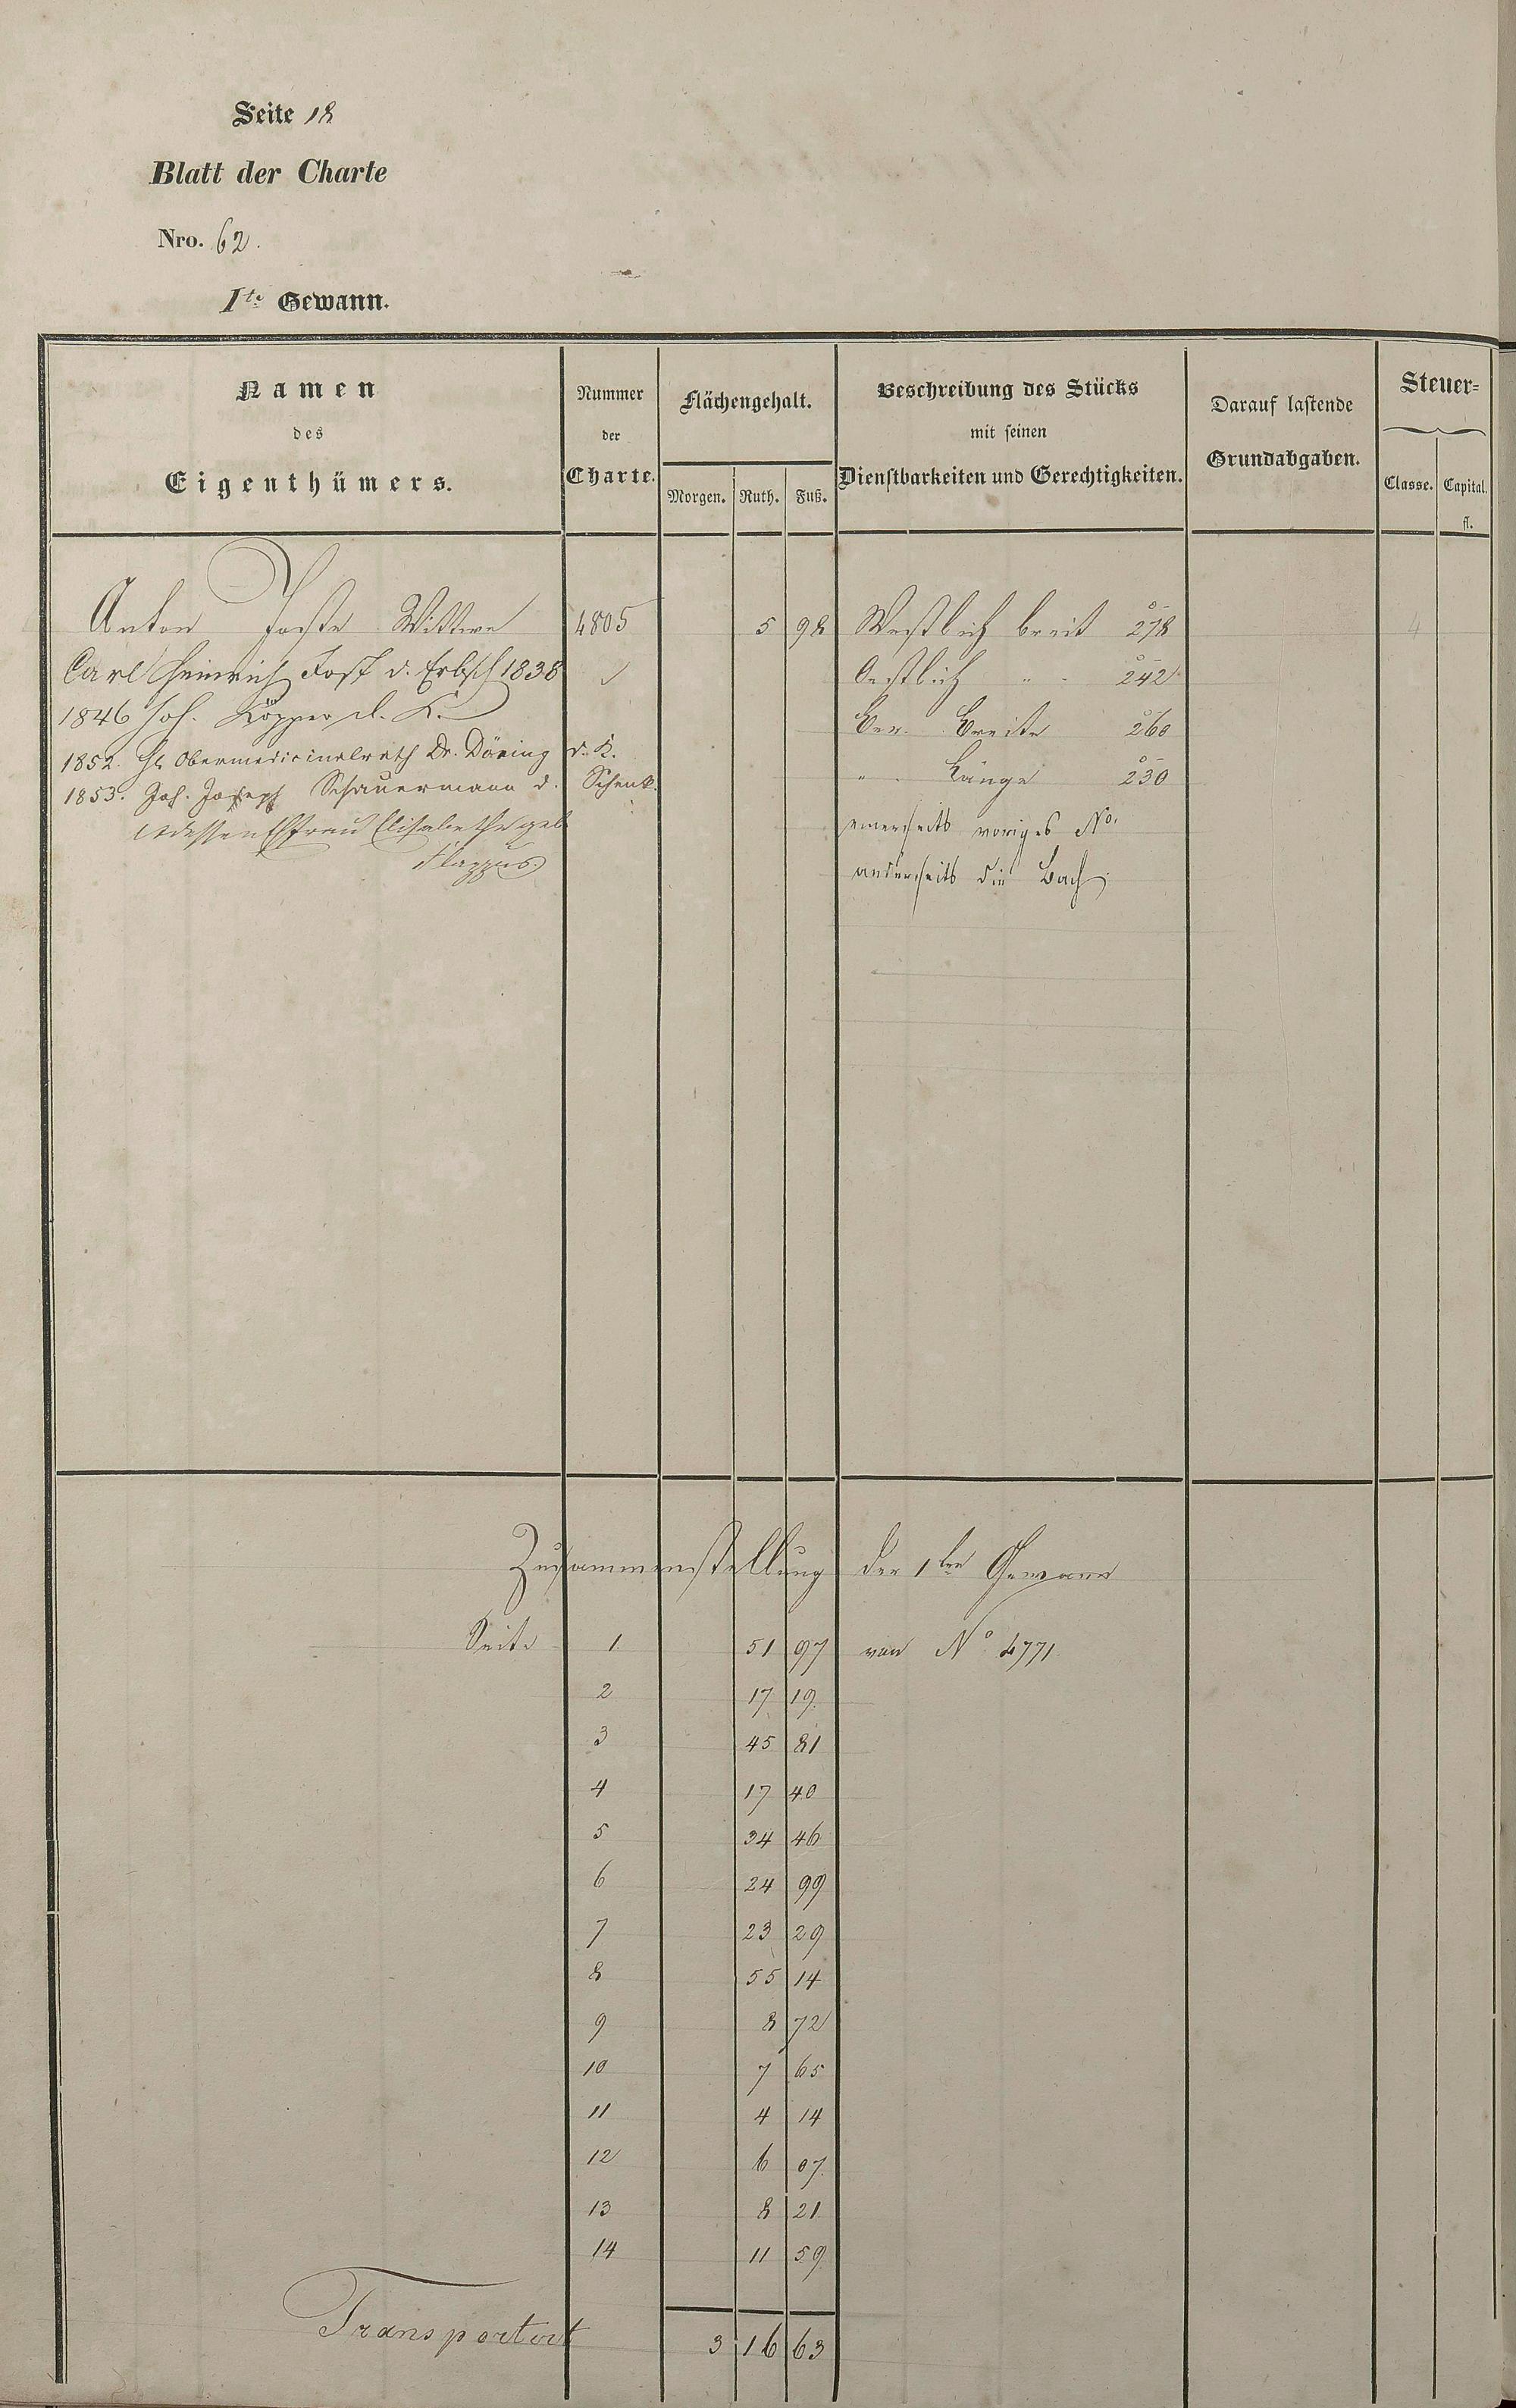 Seite 18
Blatt der Charte
Nro. 62.
1te Gewann.
Namen des Eigenthümers.
Nummer der Charte.
Flächengehalt.
Morgen. Ruth. Fuß.
Beschreibung des Stücks mit seinen Dienstbarkeiten und Gerechtigkeiten.
Darauf lastende Grundabgaben.
Steuer=
Classe. Capital.
fl.
Anton Joste Wittwe 4805 5 98 Westlich breit 278
Carl Heinrich Jost d. Erbsch 1838 Oestlich " " 242
1846 Joh. Köpper d. K. Ver. Breite 260
1852. Hr Obermedicinalrath Dr. Döring d. K. " Länge 230
1853. Joh. Joseph Schauermann d. Schenk. einerseits voriges No.
u dessen Ehfrau Elisabetha geb anderseits die Bach
Flappus
Zusammenstellung der 1ten Gewann
Seite 1. 51 97 von No 4771.
2 17 19
3 45 81
4 17 40
5 34 46
6 24 99
7 23 29
8 55 14
9 8 72
10 7 65
11 4 14
12 6 07
13 8 21
14 11 59
Transportirt 3 16 63